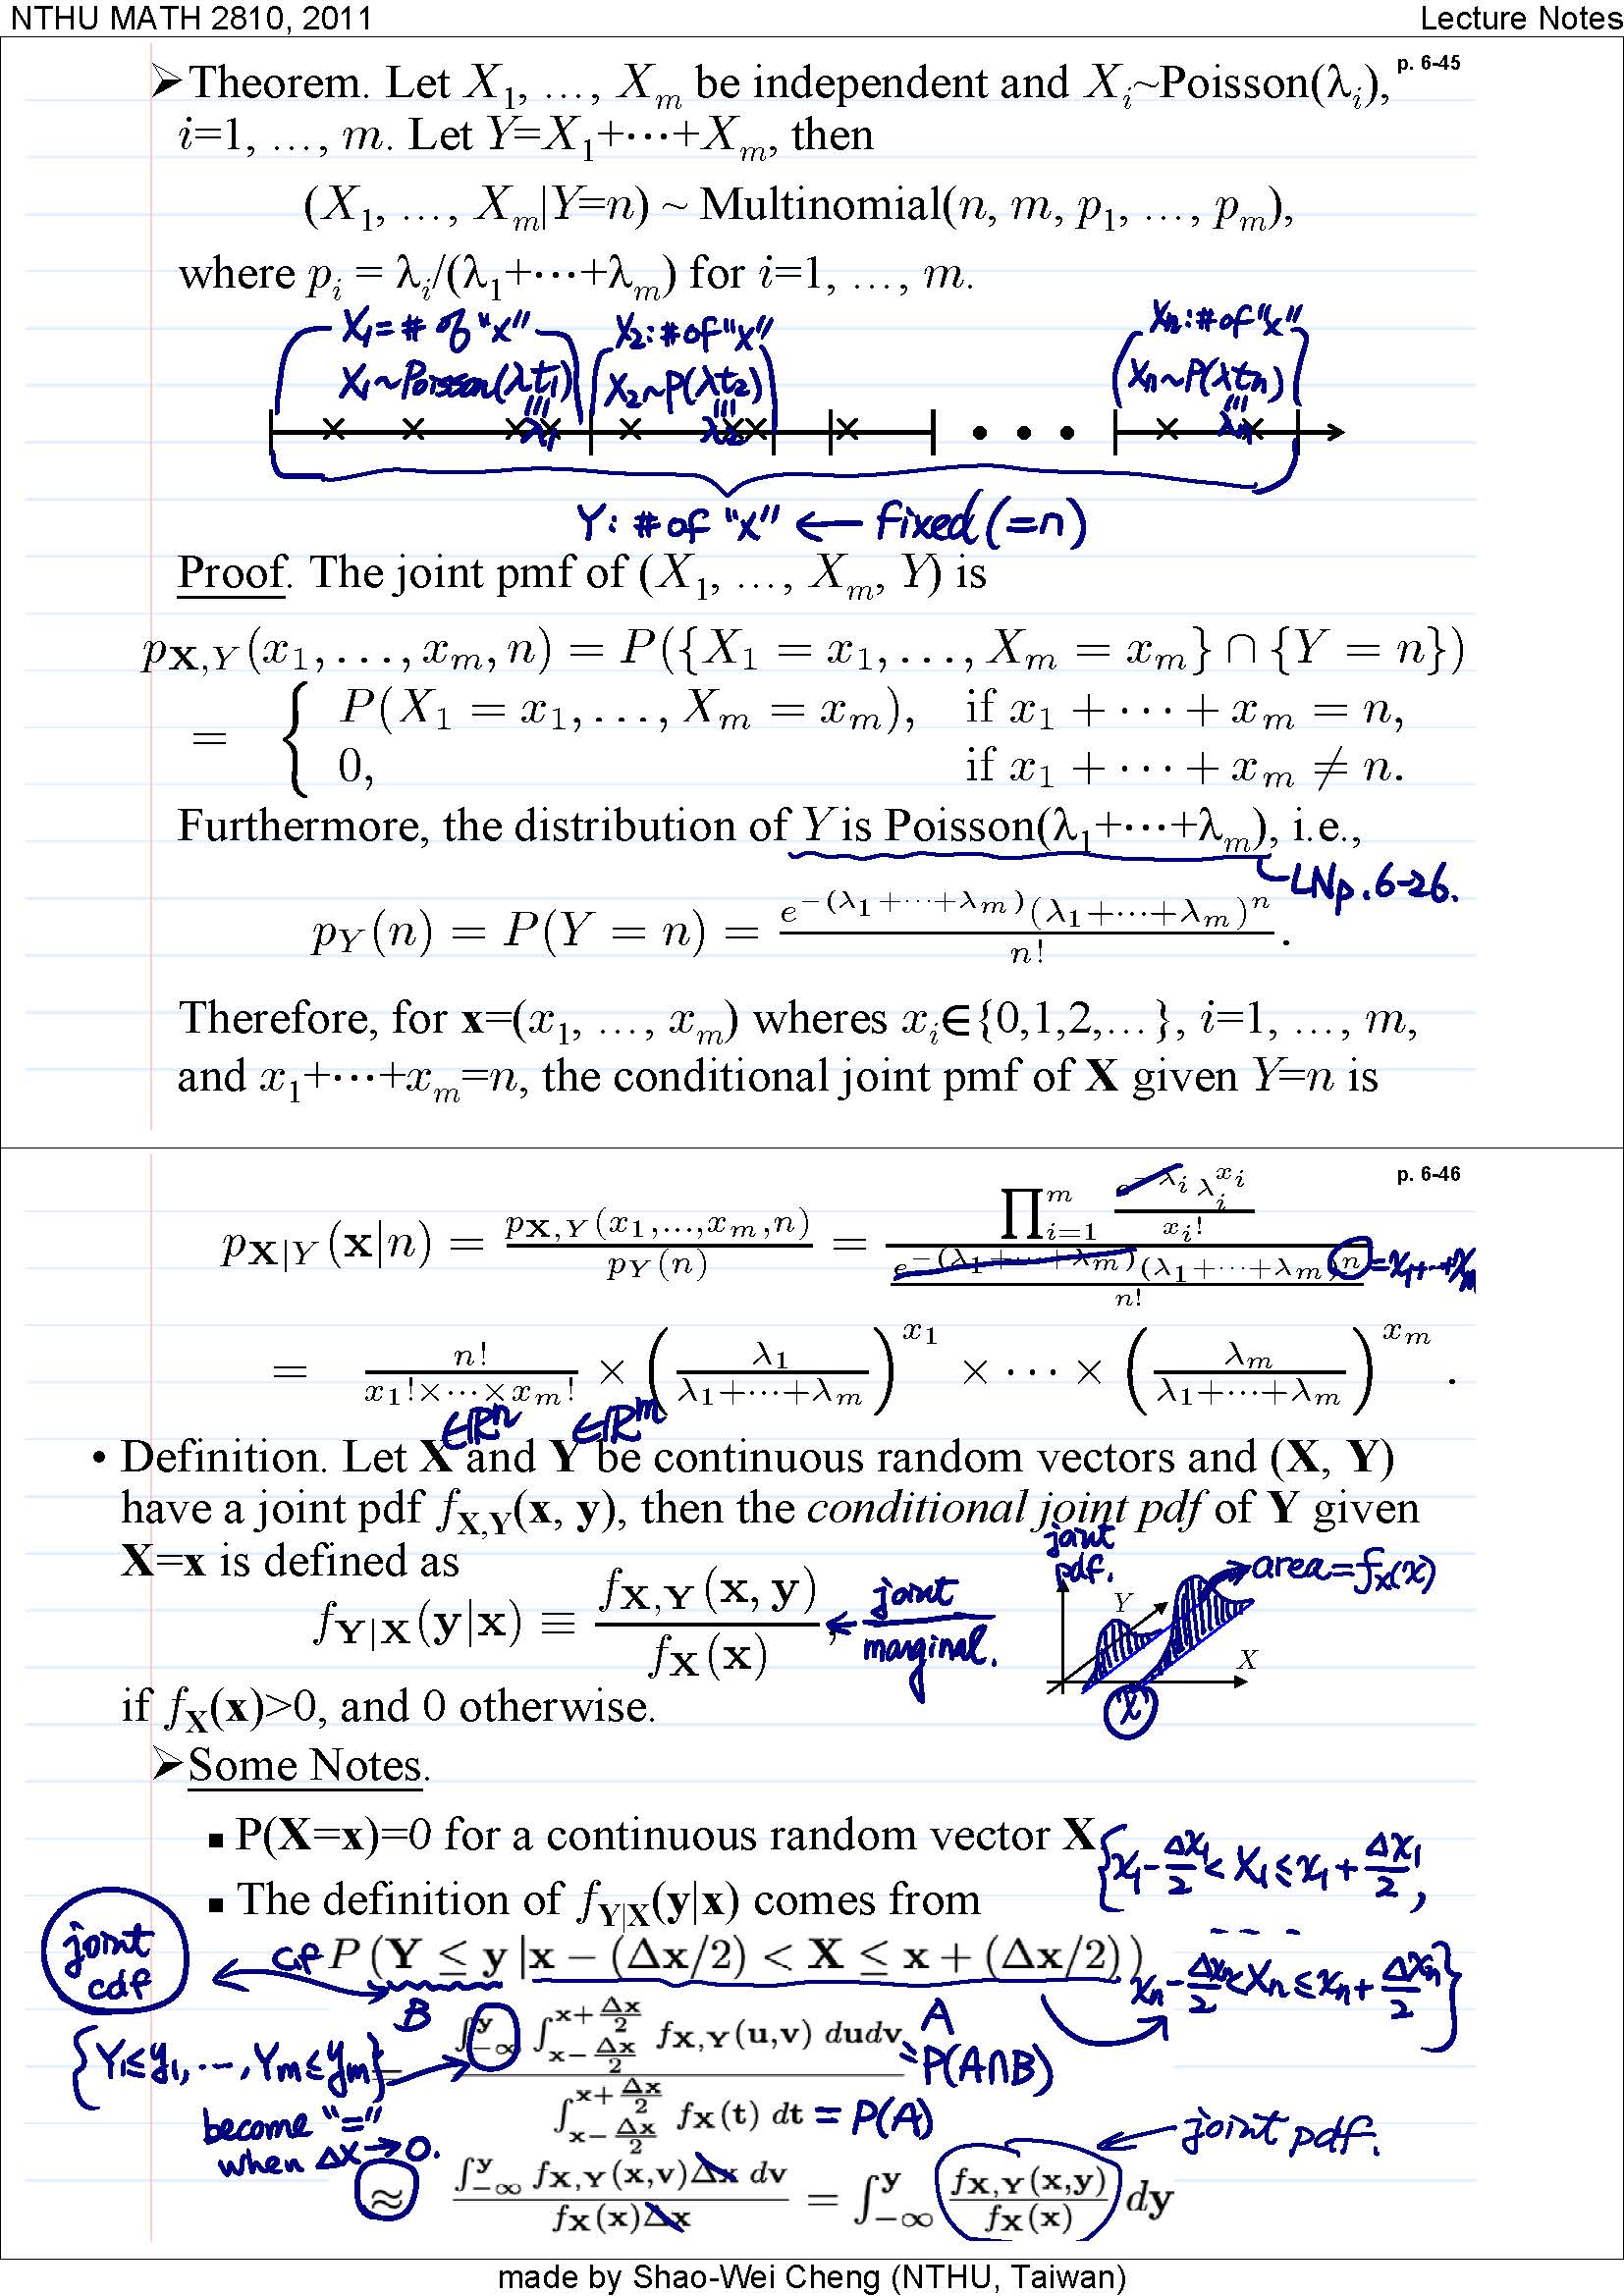 NTHU MATH 2810, 2011
Lecture Notes
p. 6-45
➢Theorem. Let X₁, …, Xₘ be independent and Xᵢ~Poisson(λᵢ),
i=1, …, m. Let Y=X₁+⋯+Xₘ, then
(X₁, …, Xₘ|Y=n) ~ Multinomial(n, m, p₁, …, pₘ),
where pᵢ = λᵢ/(λ₁+⋯+λₘ) for i=1, …, m.
X₁ = # of "x"
X₂: # of "x"
Xₙ: # of "x"
X₁~Poisson(λt₁)
X₂~P(λt₂)
Xₙ~P(λtₙ)
λ₁
λ₂
λₙ
Y: # of "x" ← fixed (=n)
Proof. The joint pmf of (X₁, …, Xₘ, Y) is
p_{X,Y}(x₁, …, xₘ, n) = P({X₁ = x₁, …, Xₘ = xₘ} ∩ {Y = n})
= { P(X₁ = x₁, …, Xₘ = xₘ), if x₁ + ⋯ + xₘ = n,
0, if x₁ + ⋯ + xₘ ≠ n.
Furthermore, the distribution of Y is Poisson(λ₁+⋯+λₘ), i.e.,
LNp.6-26.
p_Y(n) = P(Y = n) = e^{−(λ₁+⋯+λₘ)}(λ₁+⋯+λₘ)ⁿ / n! .
Therefore, for x=(x₁, …, xₘ) wheres xᵢ∈{0,1,2,…}, i=1, …, m,
and x₁+⋯+xₘ=n, the conditional joint pmf of X given Y=n is
p. 6-46
p_{X|Y}(x|n) = p_{X,Y}(x₁,…,xₘ,n) / p_Y(n) = ∏_{i=1}^{m} (e^{−λᵢ} λᵢ^{xᵢ} / xᵢ!) / (e^{−(λ₁+⋯+λₘ)}(λ₁+⋯+λₘ)ⁿ / n!)
= x₁+⋯+xₘ
= n! / (x₁!×⋯×xₘ!) × (λ₁ / (λ₁+⋯+λₘ))^{x₁} × ⋯ × (λₘ / (λ₁+⋯+λₘ))^{xₘ} .
∈ℝⁿ ∈ℝᵐ
• Definition. Let X and Y be continuous random vectors and (X, Y)
have a joint pdf f_{X,Y}(x, y), then the conditional joint pdf of Y given
X=x is defined as
f_{Y|X}(y|x) ≡ f_{X,Y}(x, y) / f_X(x) ,
← joint / marginal.
joint pdf.
area = f_X(x)
Y
X
x
if f_X(x)>0, and 0 otherwise.
➢Some Notes.
▪ P(X=x)=0 for a continuous random vector X
{x₁ − Δx₁/2 < X₁ ≤ x₁ + Δx₁/2,
▪ The definition of f_{Y|X}(y|x) comes from
- - -
joint cdf
cf P(Y ≤ y |x − (Δx/2) < X ≤ x + (Δx/2))
xₙ − Δxₙ/2 < Xₙ ≤ xₙ + Δxₙ/2}
B
A
{Y₁≤y₁, ⋯, Yₘ≤yₘ}
= ∫_{−∞}^{y} ∫_{x−Δx/2}^{x+Δx/2} f_{X,Y}(u,v) dudv / ∫_{x−Δx/2}^{x+Δx/2} f_X(t) dt
= P(A∩B)
= P(A)
become "="
when Δx→0.
joint pdf.
≈ ∫_{−∞}^{y} f_{X,Y}(x,v)Δx dv / f_X(x)Δx = ∫_{−∞}^{y} f_{X,Y}(x,y) / f_X(x) dy
made by Shao-Wei Cheng (NTHU, Taiwan)